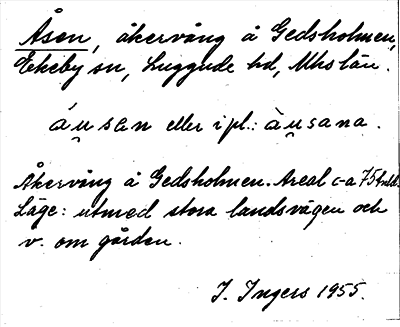 Åsen, åkervång å Gedsholmen,
Ekeby sn, Luggude hd, Mhs län.
áu̯sen eller i pl.: àu̯sana.
Åkervång å Gedsholmen. Areal c-a 75 tnld.
Läge: utmed stora landsvägen och
v. om gården.
I. Ingers 1955.